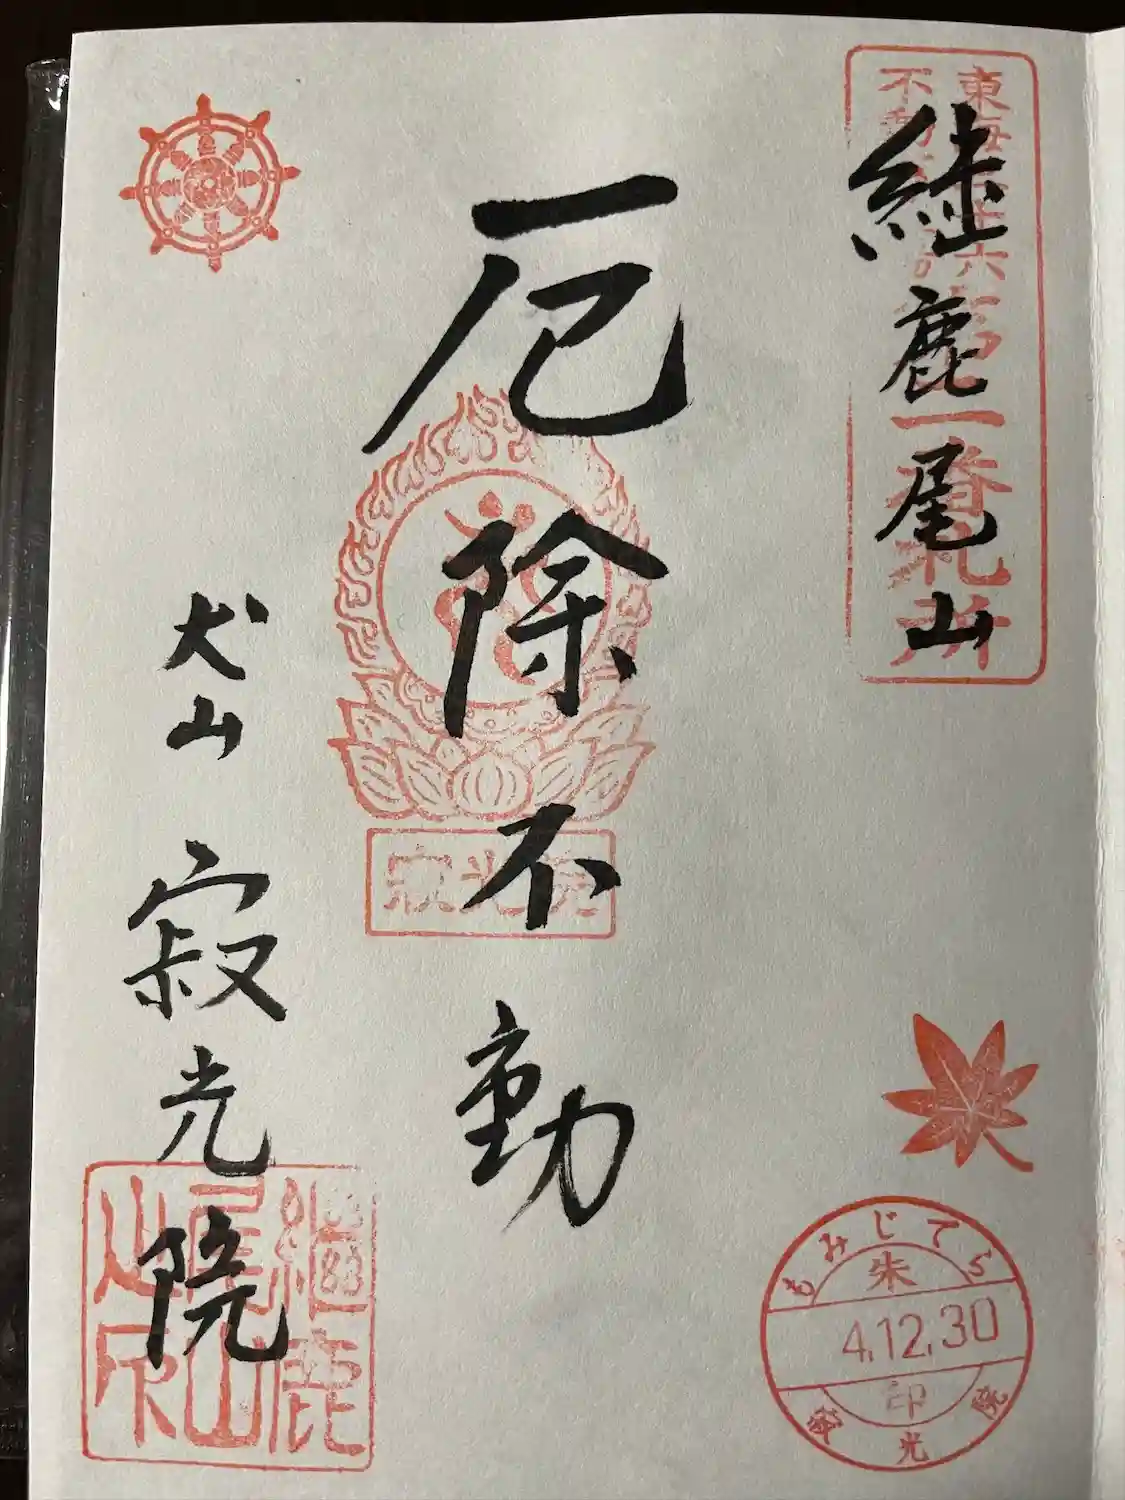 継鹿尾山
東海三十六
不動
一番札所
厄除不動
寂光院
犬山 寂光院
継鹿
尾山
之印
もみじてら
朱
4.12.30
印
寂光院